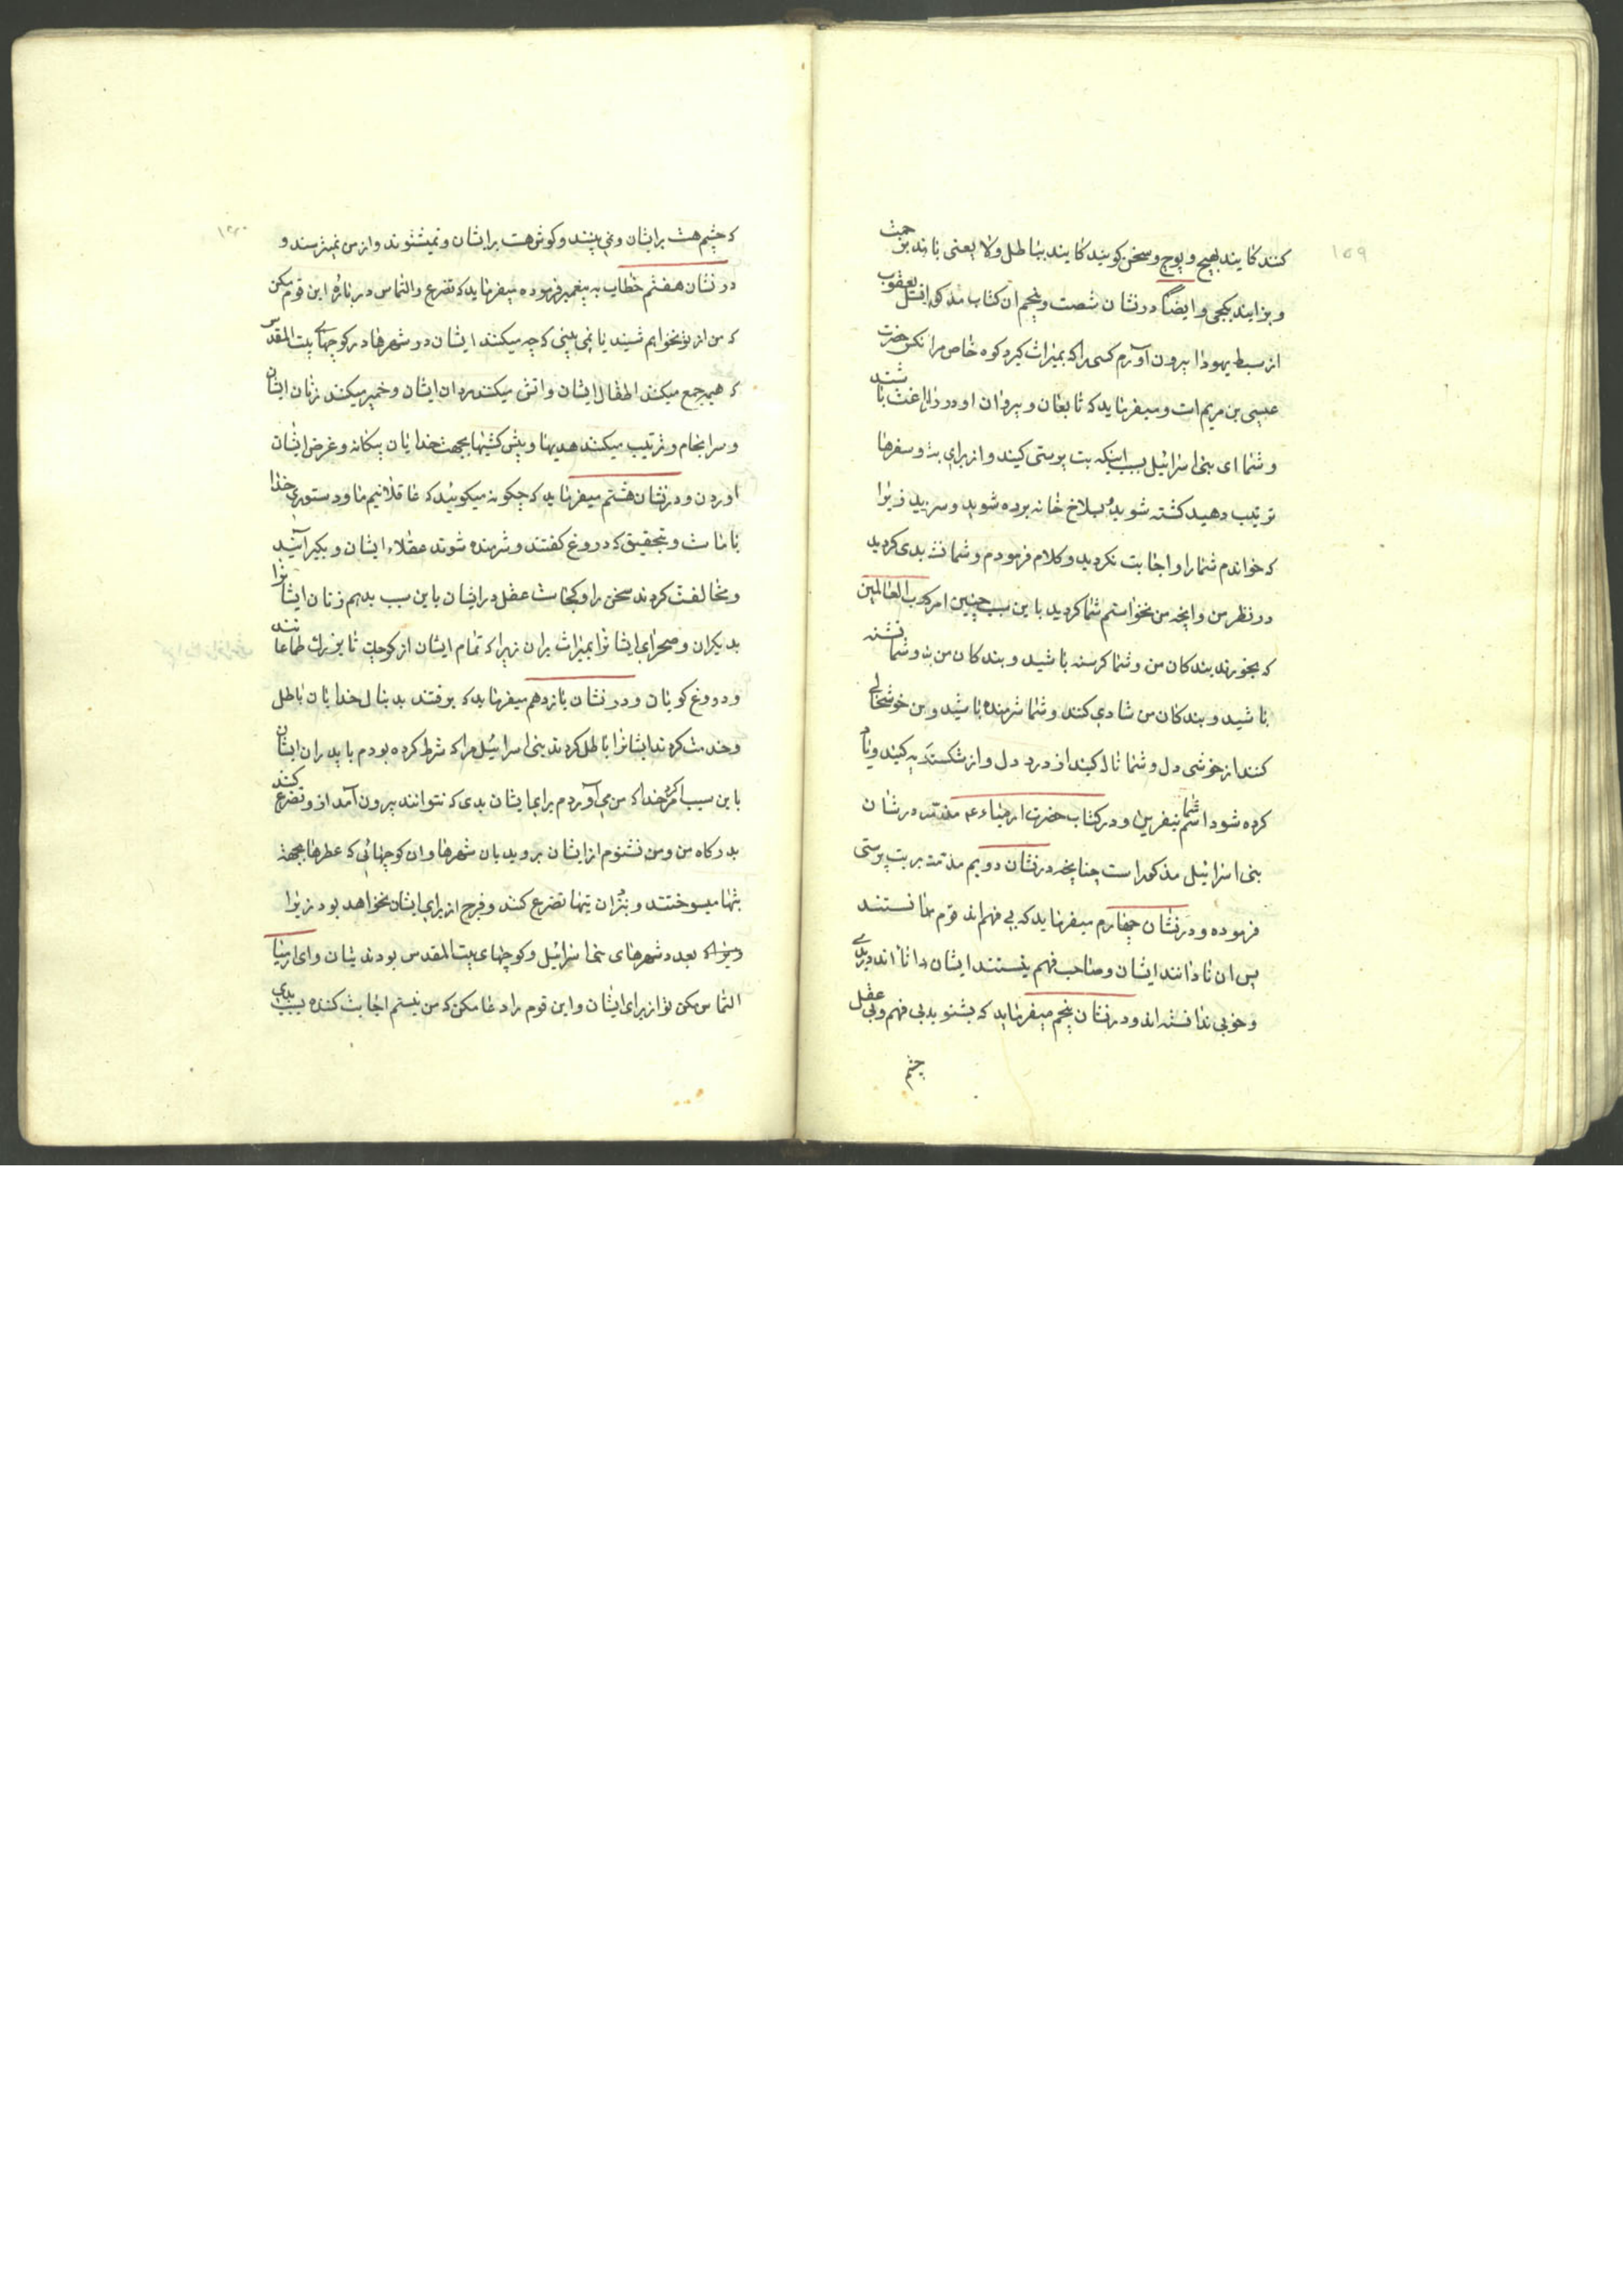 ۱۵۹
کنند کایند بهیچ و پوچ و سخن کویند کایند بباطل ولا یعنی
و بزایند بکجی و ایضا در نشان شصت و پنجم ان کتاب مذکور از نسل یعقوب
از سبط یهودا بیرون آورم کسی را که بمیراث کیرد کوه خاص مرا حضرت
عیسی بن مریم است و میفرماید که تابعان و پیروان او در باشند
و شما ای بنی اسرائیل بسبب اینکه بت پرستی کنید و از برای بت و سفرها
ترتیب دهید کشته شوید و بسلاخ خانه برده شوید و سر زیرا
که خواندم شما را و اجابت نکردید و کلام فرمودم و شما بدی کردید
در نظر من و انچه من نخواستم شما کردید باین سبب چنین امر کرد رب العالمین
که بخورند بندکان من و شما کرسنه باشید و بندکان من و شما تشنه
باشید و بندکان من شادی کنند و شما شرمنده باشید و من خوشحالی
کنند از خوشی دل و شما ناله کنید از درد دل و از
کرده شود اسم شما بنفرین و در کتاب حضرت ارمیاء ع مذمت در شان
بنی اسرائیل مذکور است چنانچه در نشان دویم مذمت بر بت پرستی
فرموده و در نشان چهارم میفرماید که بی فهم اند قوم ندانستند
پس ان نادانند ایشان و صاحب فهم نیستند ایشان دانا اند در بدی
و خوبی ندانسته اند و در نشان پنجم میفرماید که بشنوید بی فهم و بی عقل
چشم
که چشم هست برایشان و نمی بینند و کوش هست برایشان و نمیشنوند و از من نمیترسند و
در نشان هفتم خطاب به پیغمبر فرموده میفرماید که تضرع و التماس در باره این قوم مکن
که من از تو نخواهم شنید یا نمی بینی که چه میکنند ایشان در شهرها در کوچهای بیت المقدس
که هیمه جمع میکنند اطفال ایشان و اتش میکنند مردان ایشان و خمیر میکنند زنان ایشان
و سرانجام و ترتیب میکنند هدیها و پیش کشیها بجهت خدایان بیکانه و غرض ایشان
اوردن و در نشان هشتم میفرماید که چکونه میکویند که عاقلانیم ما و دستوری خدا
با ماست و بتحقیق که دروغ کفتند و شرمنده شوند عقلاء ایشان و بکیر
و مخالفت کردند سخن را و کجاست عقل در ایشان باین سبب بدهم زنان ایشانرا
بدیکران و صحرای ایشانرا بمیراث بران زیرا که تمام ایشان از کوچک تا بزرک طماعانند
و دروغ کویان و در نشان یازدهم میفرماید که برفتند بدنبال خدایان باطل
و خدمت کردند ایشانرا باطل کردند بنی اسرائیل مرا که شرط کرده بودم با پدران ایشان
باین سبب امر کرد خدا که من می آوردم برای ایشان بدی که نتوانند بیرون آمد از و تضرع کنند
بدرکاه من و من نشنوم از ایشان بروید بان شهرها و ان کوچهائی که عطرها بجهة
بتها میسوختند و بنزد ان بتها تضرع کنند و فرج از برای ایشان نخواهد بود زیرا
که بعدد شهرهای بنی اسرائیل و کوچهای بیت المقدس بودند بتان و ای ارمیا
التماس مکن تو از برای ایشان و این قوم را دعا مکن که من نیستم اجابت کننده بسبب بدی